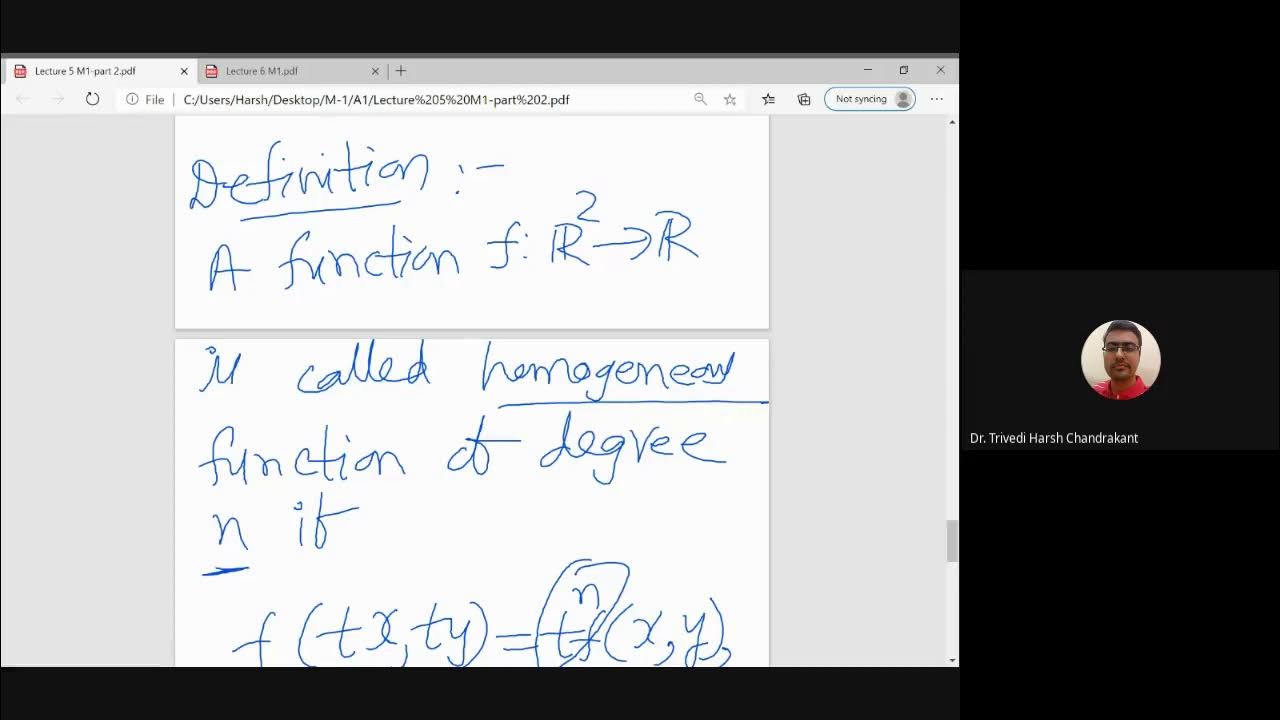 Lecture 5 M1-part 2.pdf
Lecture 6 M1.pdf
File
C:/Users/Harsh/Desktop/M-1/A1/Lecture%205%20M1-part%202.pdf
Not syncing
Definition :-
A function f: ℝ² → ℝ
is called homogeneous
function of degree
n if
f(tx, ty) = tⁿf(x, y),
Dr. Trivedi Harsh Chandrakant